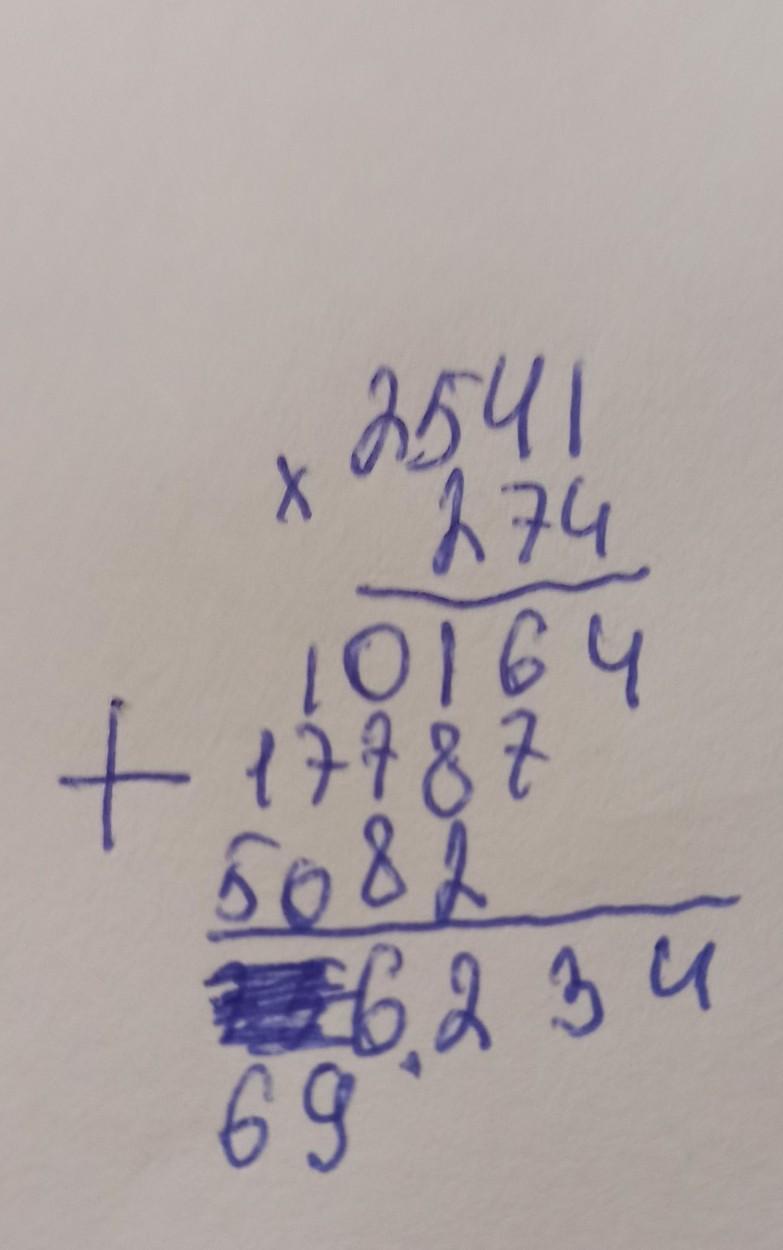 2541
× 274
10164
+ 17787
5082
6.234
69